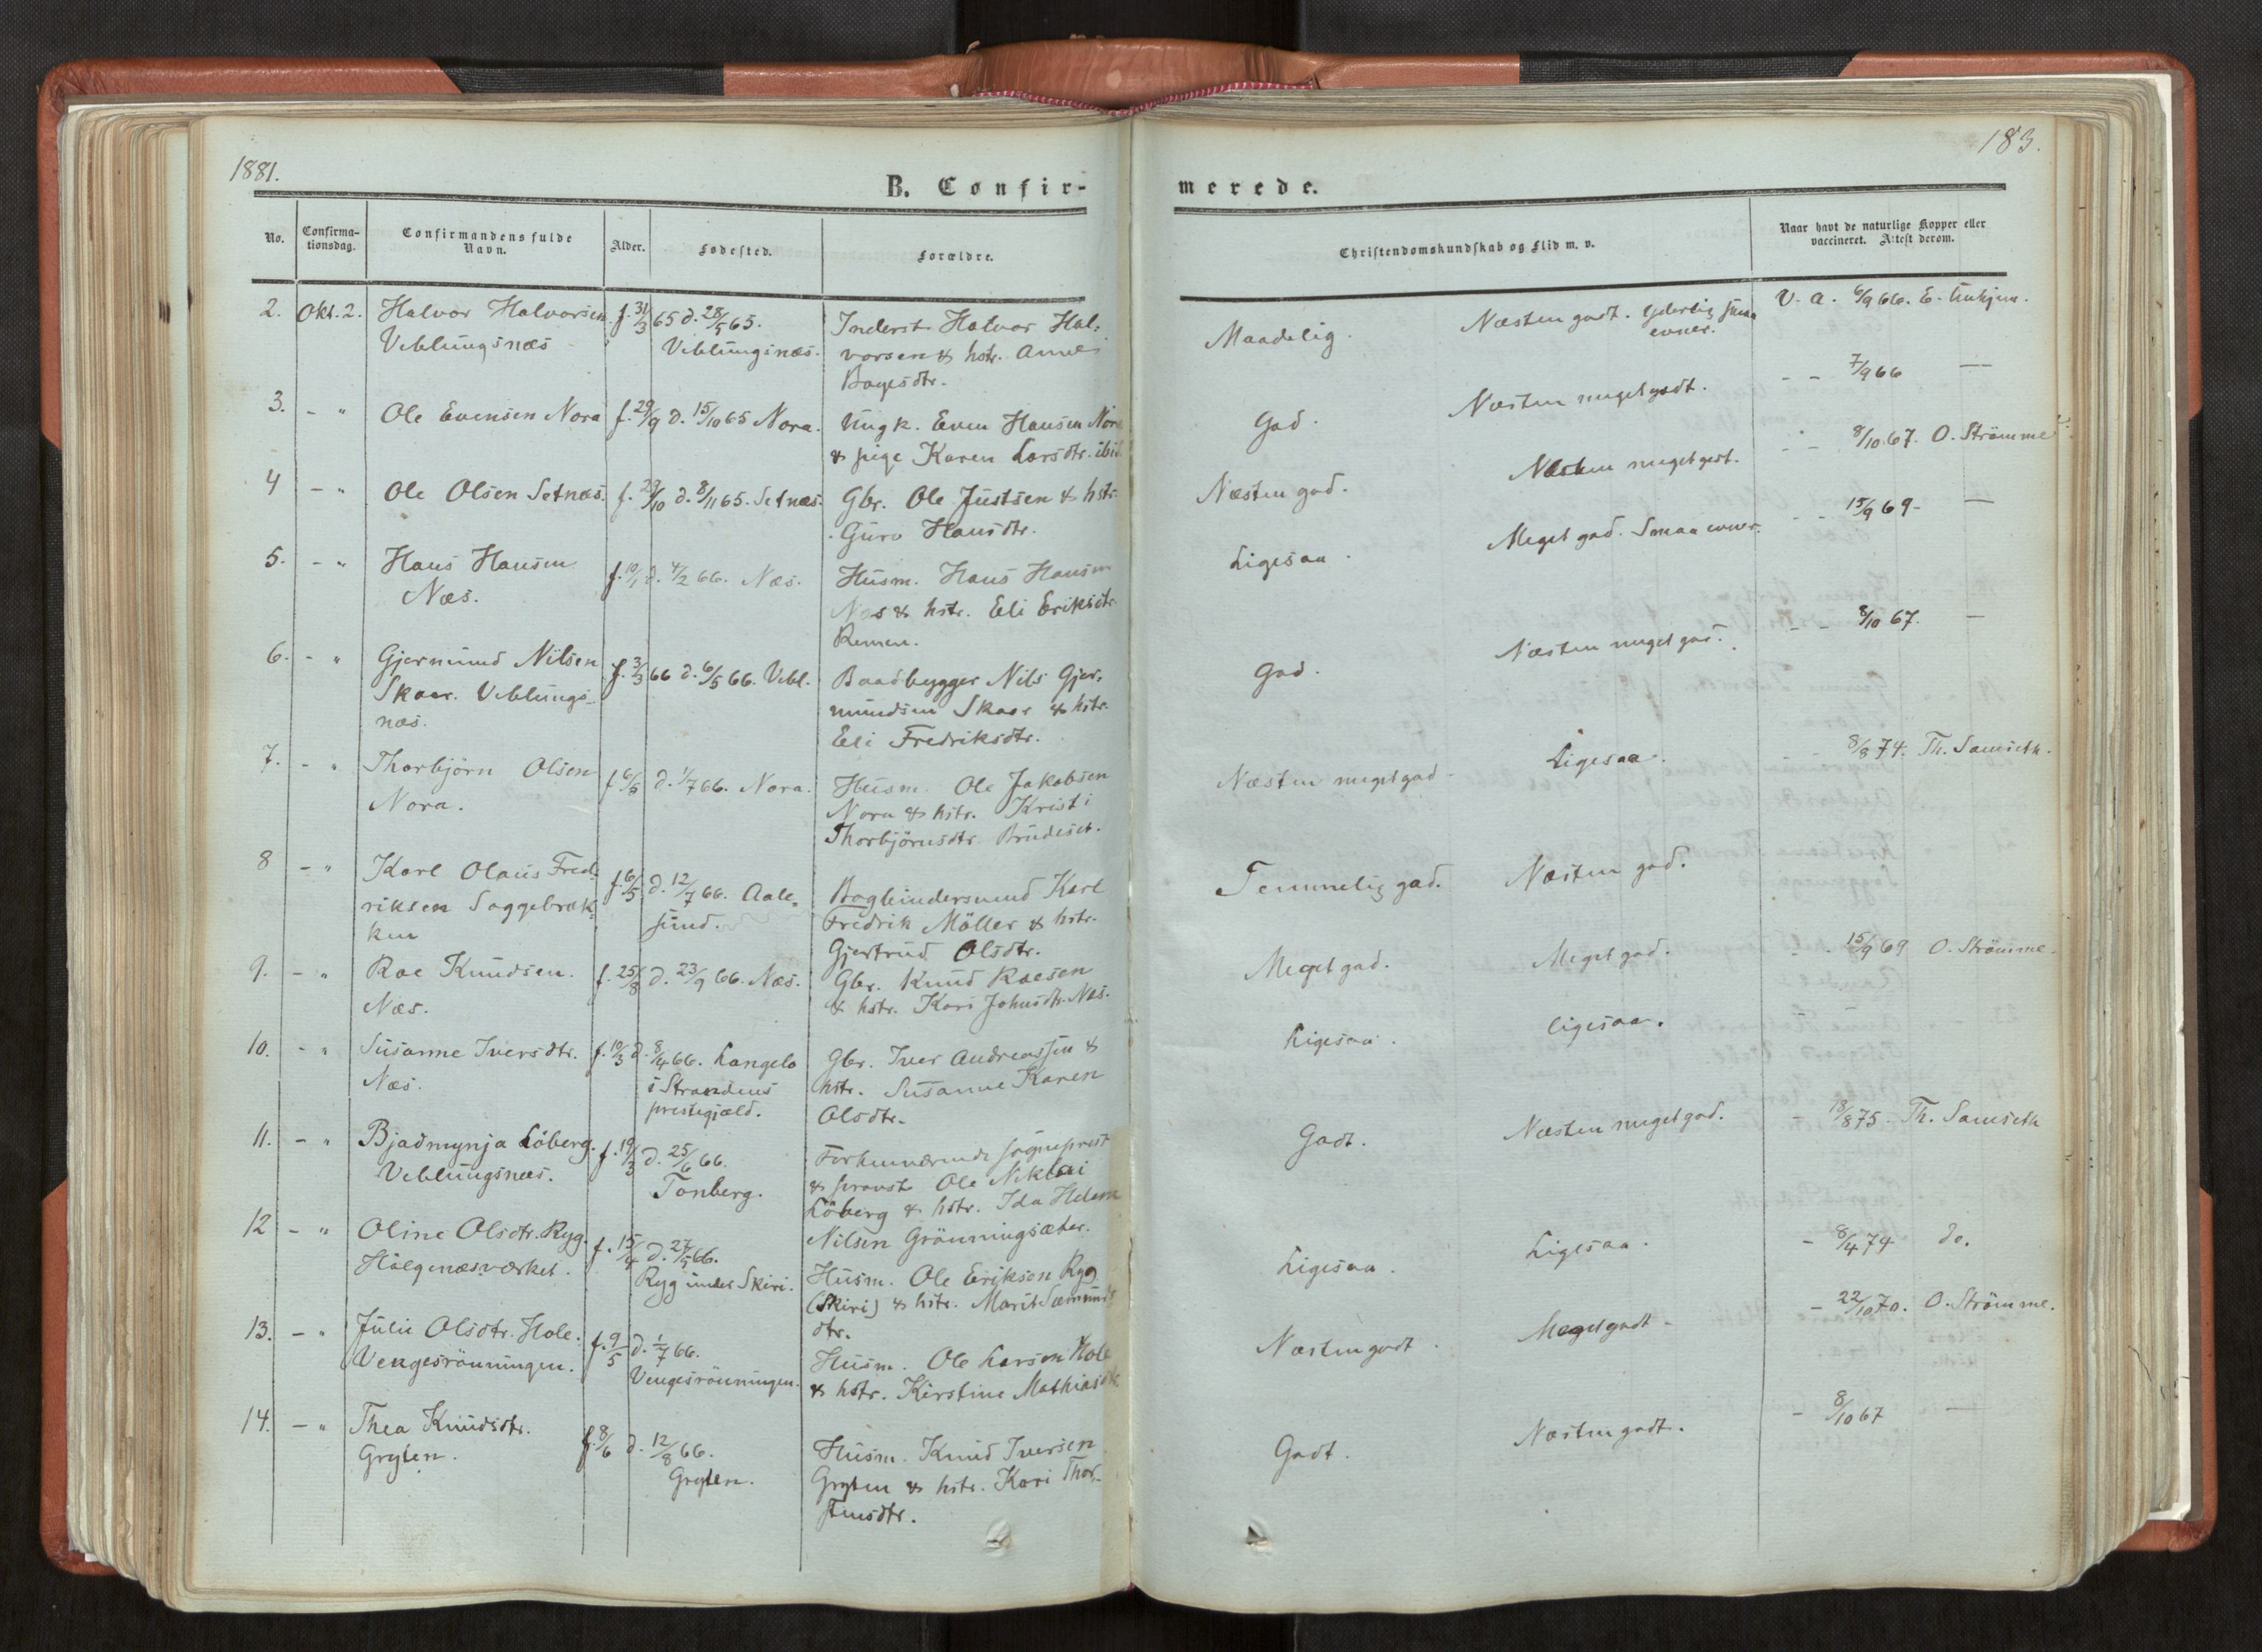 1881.
183.
B. Confir-
merede.
No.
Confirma-
tionsdag.
Confirmandens fulde
Navn.
Alder.
Fødested.
Forældre.
Christendomskundskab og Flid m. v.
Naar havt de naturlige Kopper eller
vaccineret. Attest derom.
2. Okt. 2. Halvor Halvorsen f. 31/3 65 d. 28/5 65. Inderst Halvor Hal- Maadelig. Næsten godt. Yderlig smaa V. a. 6/9 66.
Veblungsnæs Veblungsnæs. vorsen & hstr. Anne evner.
Bagesdtr.
3. - " Ole Evensen Nora f. 29/9 d. 15/10 65 Nora. Ungk. Even Hansen Nora God. Næsten meget godt. - - 7/9 66 —
& pige Karen Larsdtr. ibid.
4 - " Ole Olsen Setnæs. f. 23/10 d. 8/11 65. Setnæs. Gbr. Ole Justsen & hstr. Næsten god. Næsten meget godt. - - 8/10 67. O. Strömme
Guro Hansdtr.
5. - " Hans Hansen f. 10/1 d. 4/2 66. Næs. Husm. Hans Hansen Ligesaa. Meget god. Smaa evner. - - 15/9 69 - —
Næs. Næs & hstr. Eli Eriksdtr.
Remen.
6. - " Gjermund Nilsen f. 3/3 66 d. 6/5 66. Vebl. Baadbygger Nils Gjer- God. Næsten meget god. - - 8/10 67. —
Skaar. Veblungs- mundsen Skaar & hstr.
næs. Eli Fredriksdtr.
7. - " Thorbjörn Olsen f 6/5 d. 1/7 66. Nora. Husm. Ole Jakobsen Næsten meget god Ligesaa. - 8/8 74. Th. Samseth.
Nora. Nora & hstr. Kristi
Thorbjörnsdtr. Brudeset.
8 - " Karl Olaus Fred- f. 6/5 d. 12/7 66. Aale- Bogbindersvend Karl Temmelig god. Næsten god.
riksen Soggebræk- sund. Fredrik Möller & hstr.
ken Gjertrud Olsdtr.
9. - " Roe Knudsen. f. 25/8 d. 23/9 66. Næs. Gbr. Knud Roesen Meget god. Meget god. - - 15/9 69 O. Strömme.
Næs. & hstr. Kari Johnsdtr. Næs.
10. - " Susanne Iversdtr. f. 10/3 d. 8/4 66. Langelo Gbr. Iver Andreassen & Ligesaa. Ligesaa.
Næs. i Strandens hstr. Susanne Karen
prestegjæld. Olsdtr.
11. - " Bjadmynja Löberg. f. 19/3 d. 25/6 66. Forhenværende sogneprest Godt. Næsten meget god. - 13/8 75 - Th. Samseth
Veblungsnæs. Tonberg. & provst Ole Niklai
Löberg & hstr. Ida Helene
Nilsen Grönningsæter.
12 - " Oline Olsdtr. Ryg. f. 15/4 d. 27/5 66. Husm. Ole Eriksen Ryg Ligesaa. Ligesaa. - 8/4 74 do.
Holgenæsværket. Ryg under Skiri. (Skiri) & hstr. Marit Sæmunds
dtr.
13. - " Julie Olsdtr. Hole. f. 9/5 d. 1/7 66. Husm. Ole Larsen Hole Næsten godt. Meget godt - - 22/10 70. O. Strömme.
Vengesrönningen. Vengesrönningen. & hstr. Kirstine Mathiasdtr.
14. - " Thea Knudsdtr. f. 8/6 d. 12/8 66. Husm. Knud Iversen Godt. Næsten godt. - 8/10 67 —
Gryten. Gryten. Gryten & hstr. Kari Thor-
stensdtr.